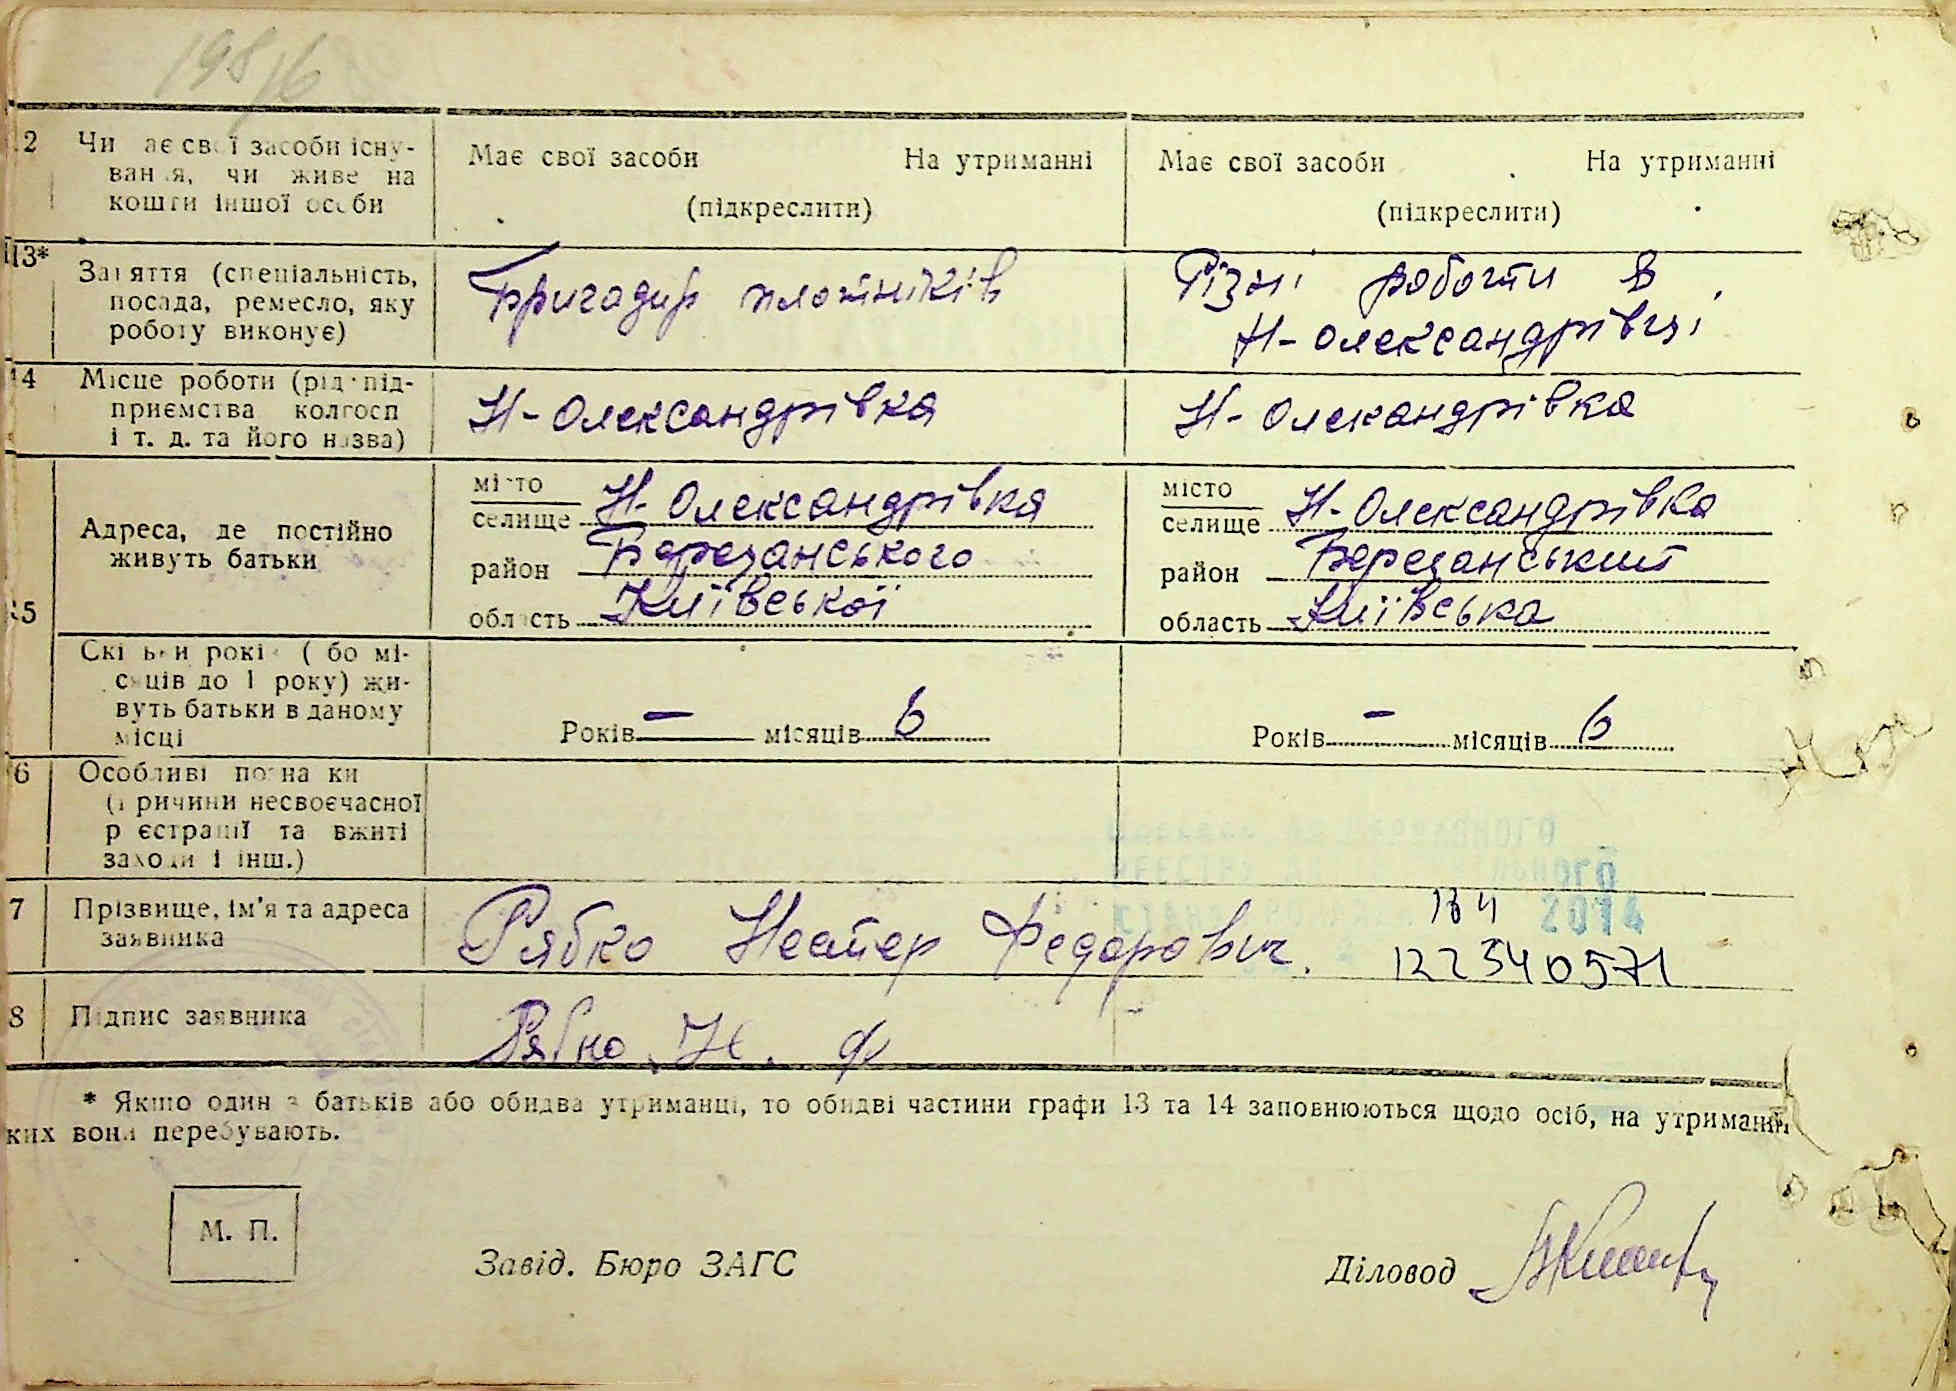 198/6
12 Чи має свої засоби існу- Має свої засоби На утриманні Має свої засоби На утриманні
вання, чи живе на
кошти іншої особи (підкреслити) (підкреслити)
13* Заняття (спеціальність, Бригадир плотніків Різні роботи в
посада, ремесло, яку Н-Олександрівці
роботу виконує)
14 Місце роботи (рід під- Н-Олександрівка Н-Олександрівка
приємства колгосп
і т. д. та його назва)
15 Адреса, де постійно місто місто
живуть батьки селище Н-Олександрівка селище Н-Олександрівка
район Березанського район Березанський
область Київської область Київська
Скільки років (або мі-
сяців до 1 року) жи-
вуть батьки в даному
місці Років – місяців 6 Років – місяців 6
6 Особливі познаки
(причини несвоєчасної
реєстрації та вжиті
заходи і інш.)
7 Прізвище, ім'я та адреса Рябко Федорович. 164 2014
заявника 122340571
8 Підпис заявника Рябко Н. Ф
* Якщо один з батьків або обидва утриманці, то обидві частини графи 13 та 14 заповнюються щодо осіб, на утриманні
ких вони перебувають.
М. П.
Завід. Бюро ЗАГС Діловод